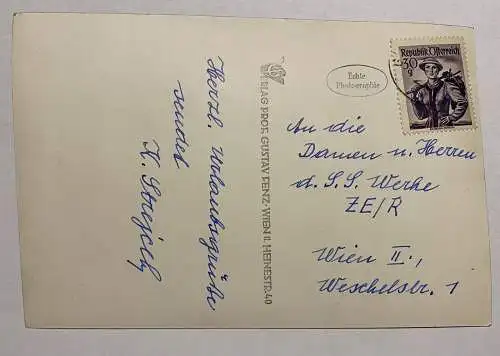 Herzl. Urlaubsgrüße
sendet
VERLAG PROF. GUSTAV PENZ - WIEN II. HEINESTR. 40
Echte
Photographie
Republik Österreich
30
g
An die
Damen u. Herren
d. S.S. Werke
ZE/R
Wien II.,
Weschelstr. 1